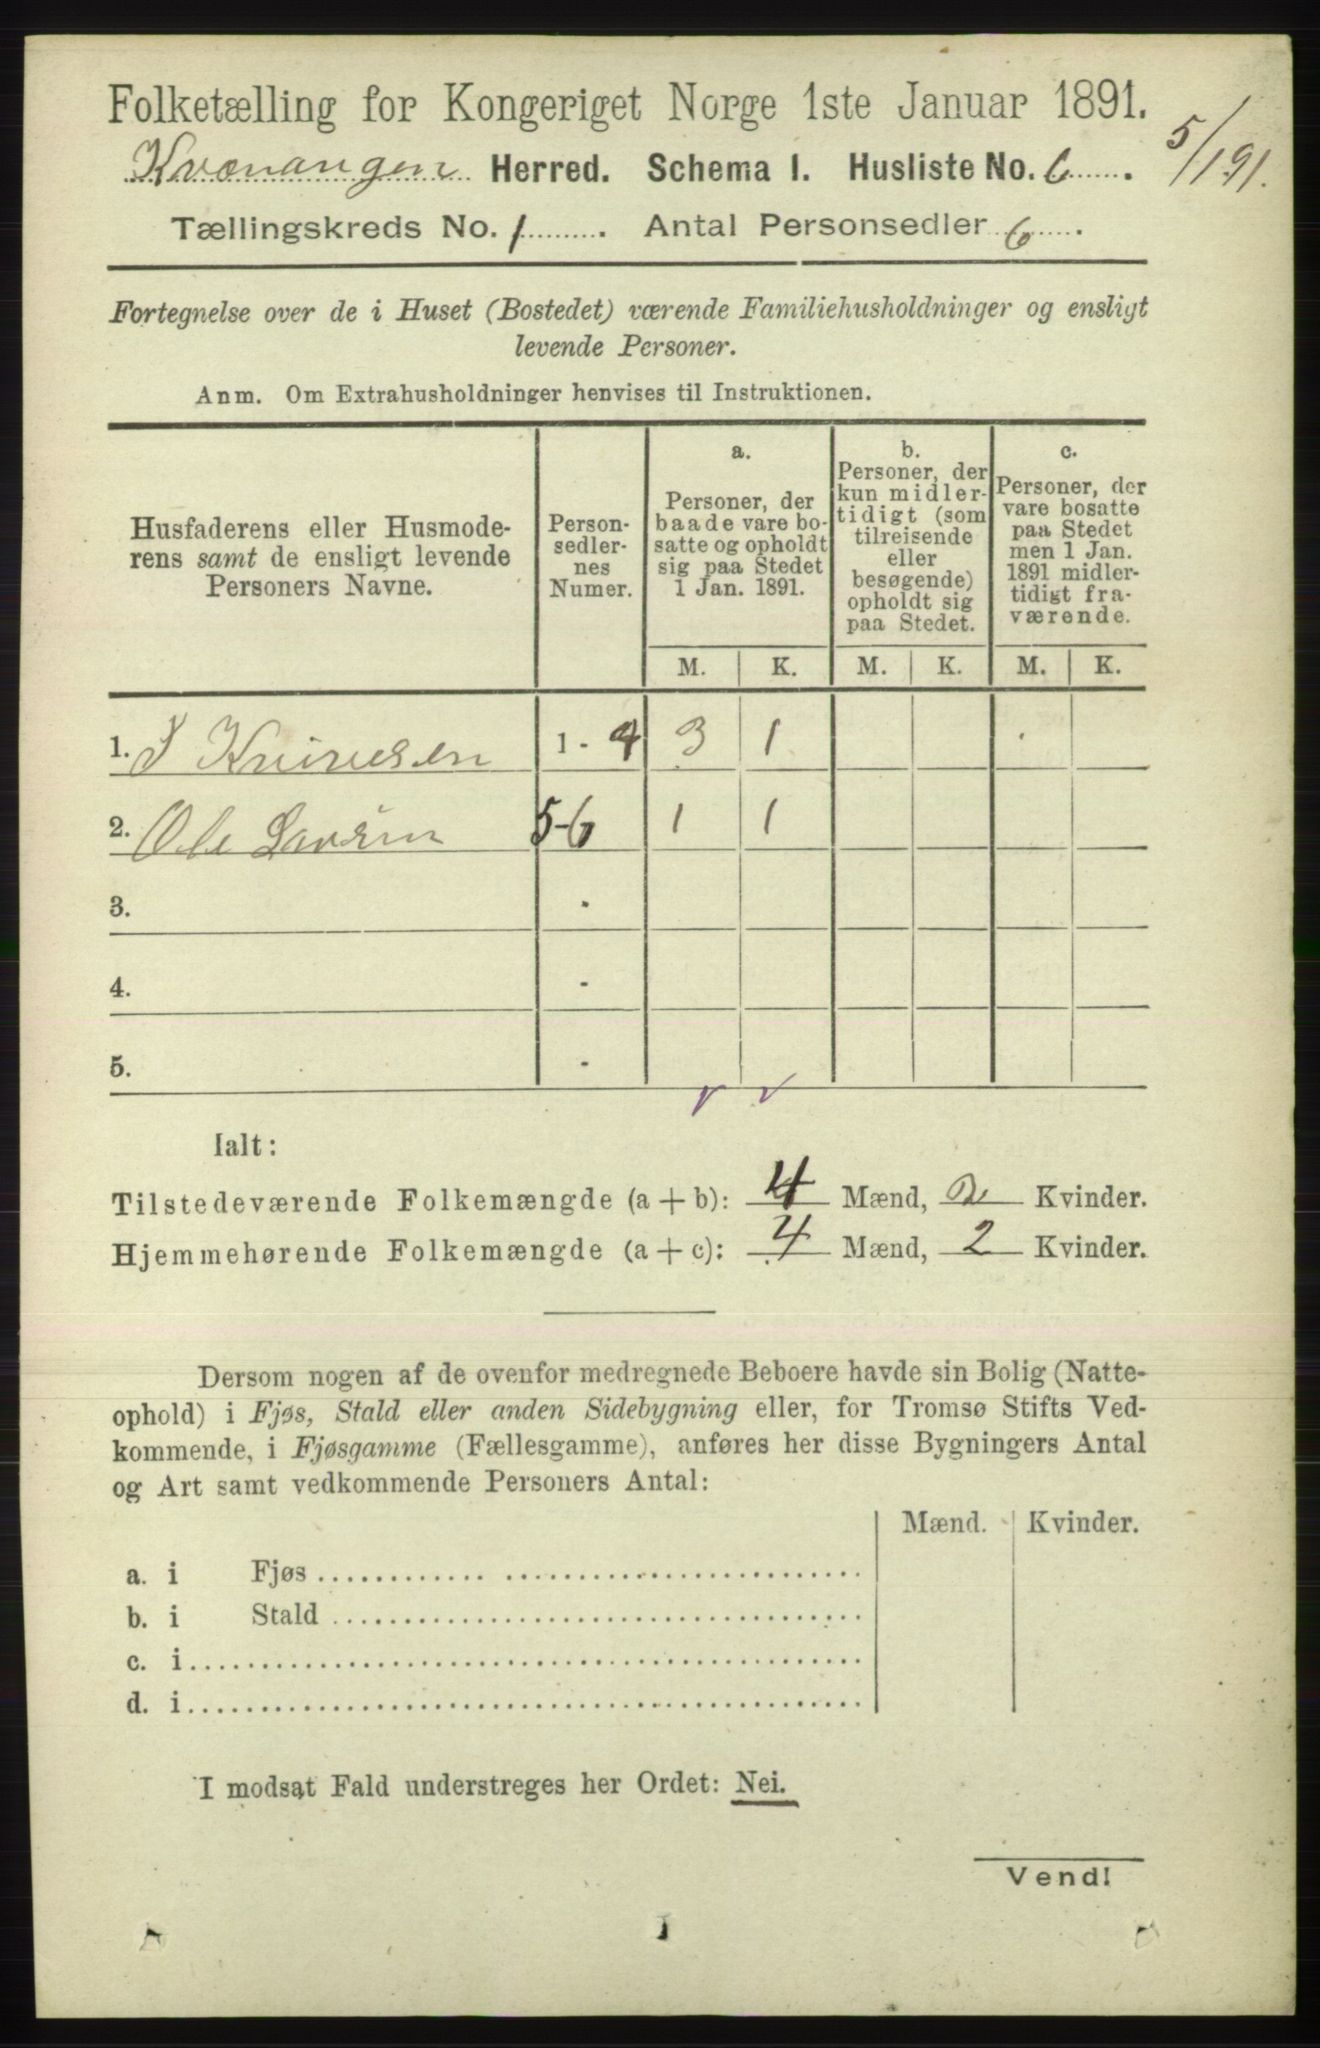 Folketælling for Kongeriget Norge 1ste Januar 1891.
5/1 91.
Kvænangen Herred. Schema I. Husliste No. 6.
Tællingskreds No. 1. Antal Personsedler 6.
Fortegnelse over de i Huset (Bostedet) værende Familiehusholdninger og ensligt
levende Personer.
Anm. Om Extrahusholdninger henvises til Instruktionen.
Husfaderens eller Husmode-
rens samt de ensligt levende
Personers Navne.
Person-
sedler-
nes
Numer.
a.
Personer, der
baade vare bo-
satte og opholdt
sig paa Stedet
1 Jan. 1891.
b.
Personer, der
kun midler-
tidigt (som
tilreisende
eller
besøgende)
opholdt sig
paa Stedet.
c.
Personer, der
vare bosatte
paa Stedet
men 1 Jan.
1891 midler-
tidigt fra-
værende.
M. K. M. K. M. K.
1. 1-4 3 1
2. Ole Larsen 5-6 1 1
3. -
4. -
5. -
Ialt:
Tilstedeværende Folkemængde (a + b): 4 Mænd, 2 Kvinder.
Hjemmehørende Folkemængde (a + c): 4 Mænd, 2 Kvinder.
Dersom nogen af de ovenfor medregnede Beboere havde sin Bolig (Natte-
ophold) i Fjøs, Stald eller anden Sidebygning eller, for Tromsø Stifts Ved-
kommende, i Fjøsgamme (Fællesgamme), anføres her disse Bygningers Antal
og Art samt vedkommende Personers Antal:
Mænd. Kvinder.
a. i Fjøs
b. i Stald
c. i
d. i
I modsat Fald understreges her Ordet: Nei.
Vend!